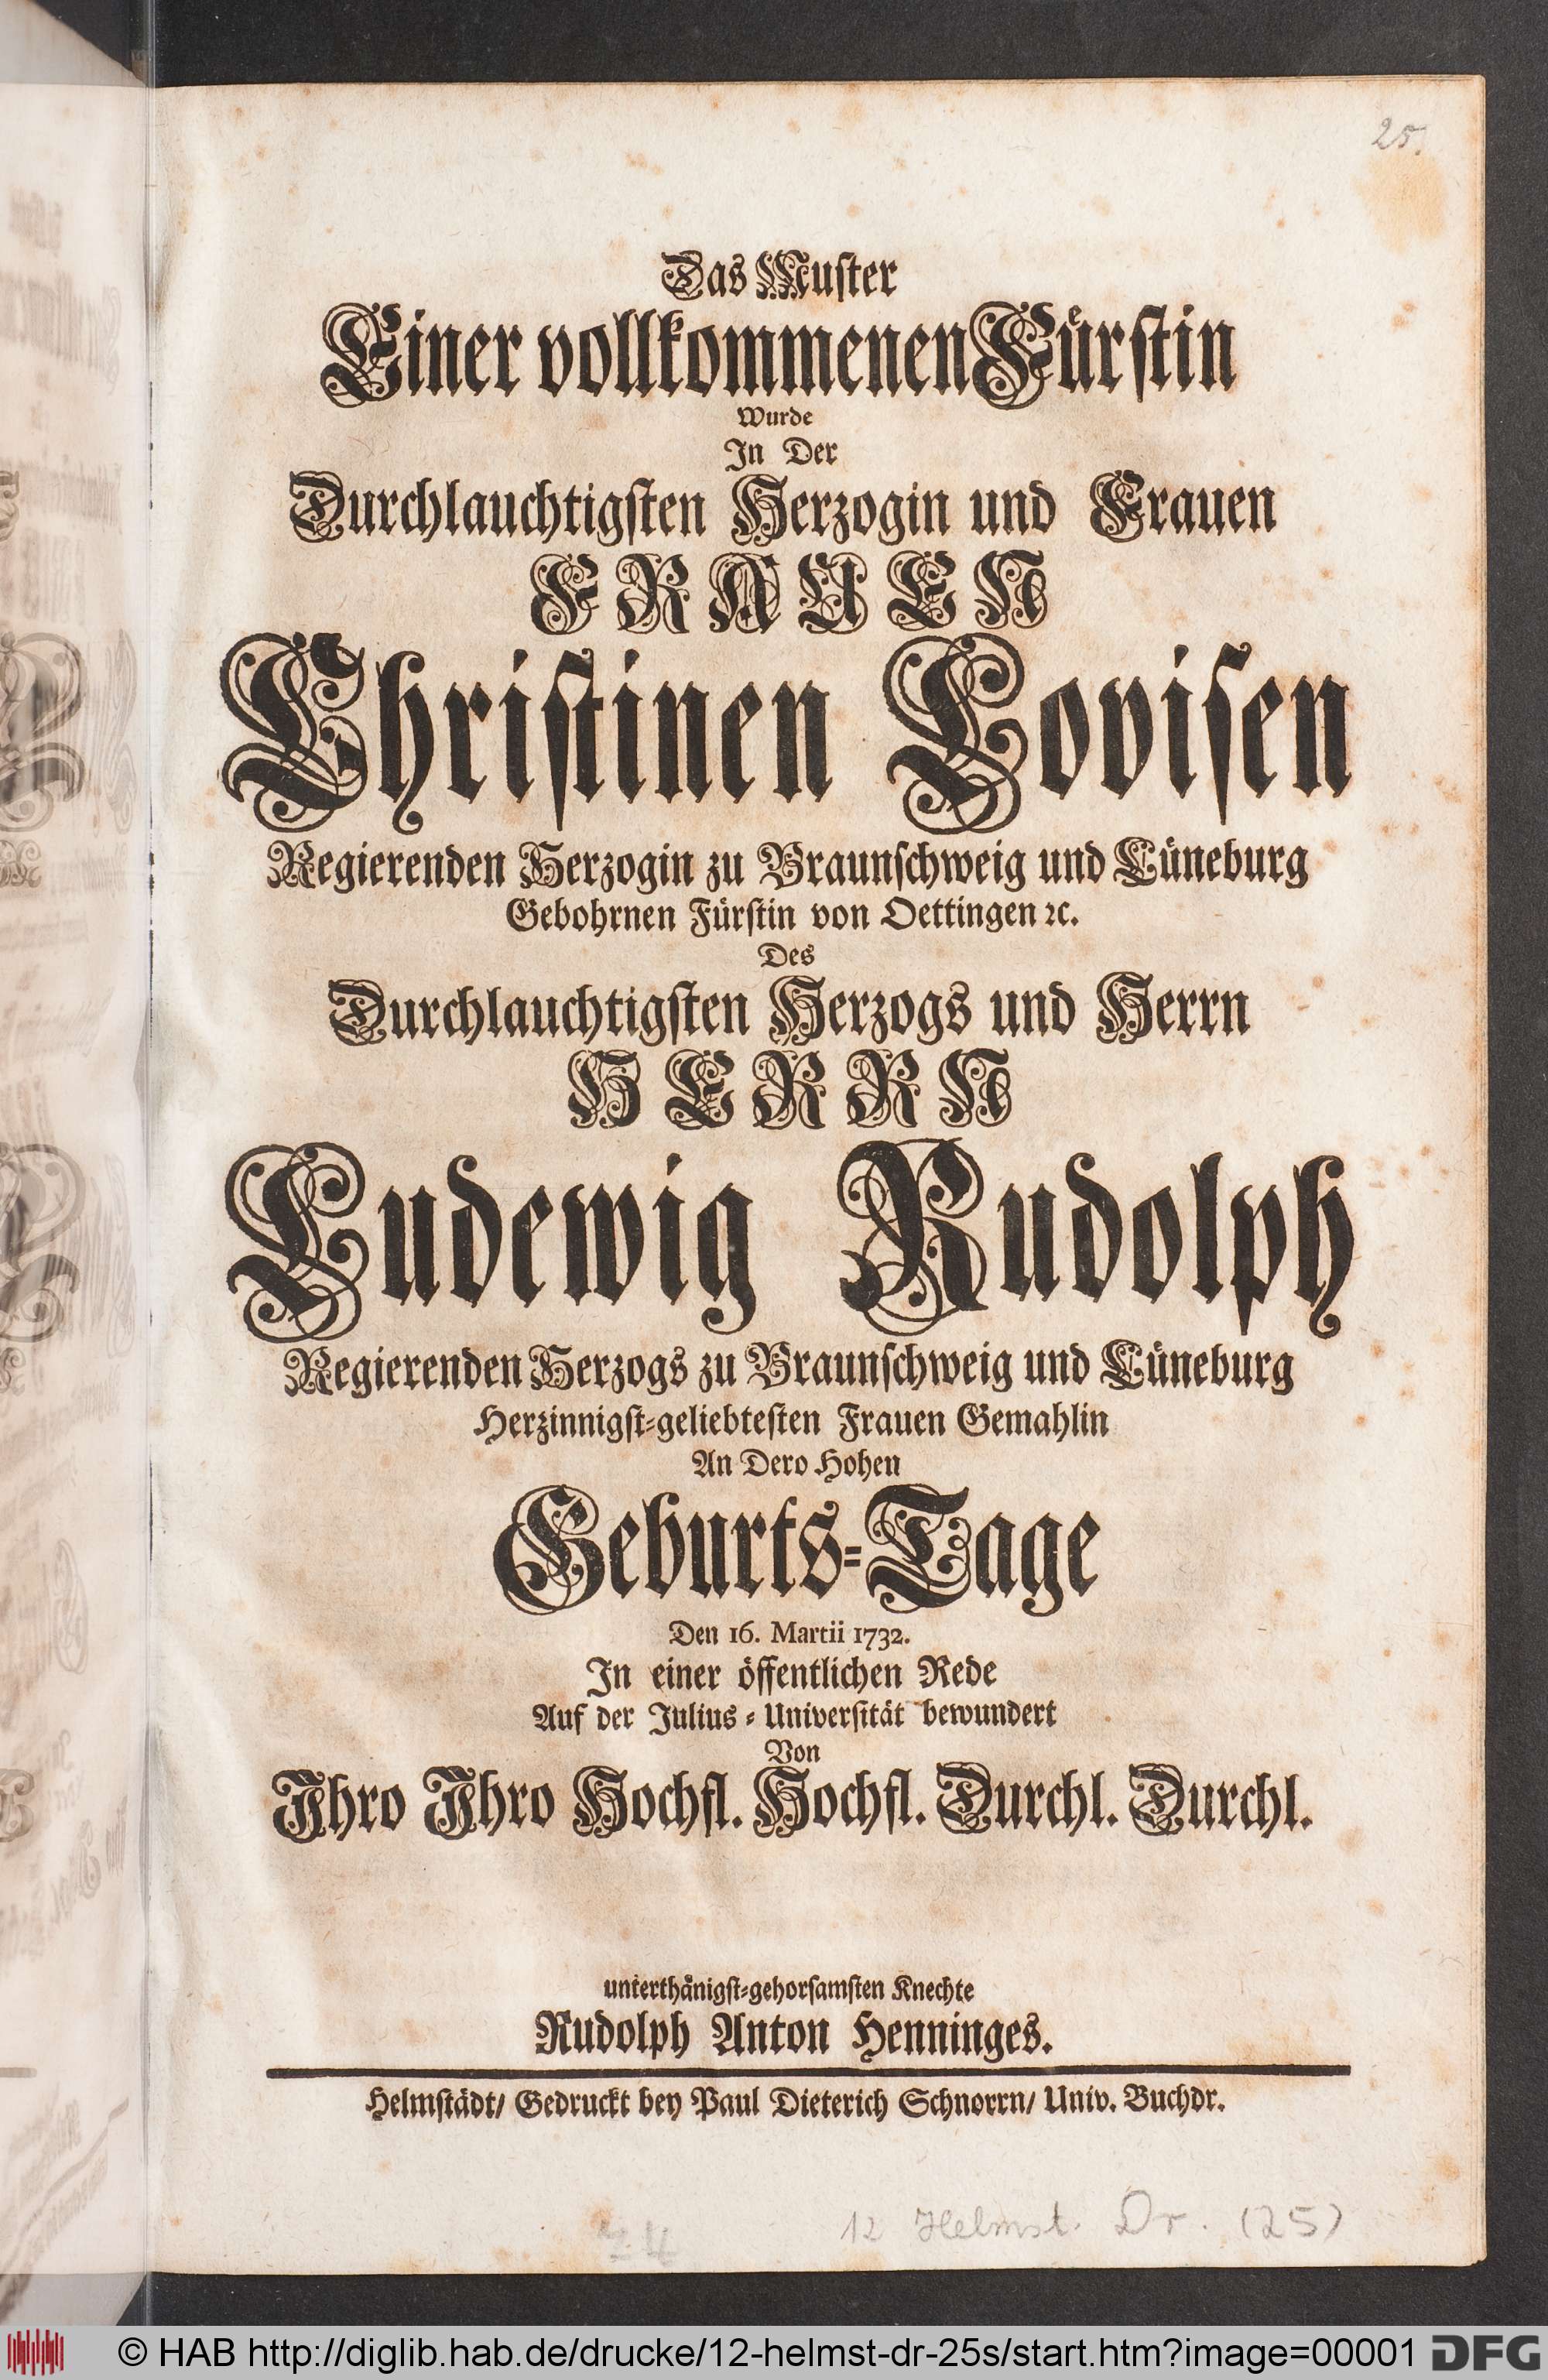 25.
Das Muſter
Einer vollkommenen Fürſtin
Wurde
In Der
Durchlauchtigſten Herzogin und Frauen
FRAUEN
Chriſtinen Loviſen
Regierenden Herzogin zu Braunſchweig und Lüneburg
Gebohrnen Fürſtin von Oettingen ꝛc.
Des
Durchlauchtigſten Herzogs und Herrn
HERRN
Ludewig Rudolph
Regierenden Herzogs zu Braunſchweig und Lüneburg
Herzinnigſt-geliebteſten Frauen Gemahlin
An Dero Hohen
Geburts-Tage
Den 16. Martii 1732.
In einer öffentlichen Rede
Auf der Julius-Univerſität bewundert
Von
Ihro Ihro Hochfl. Hochfl. Durchl. Durchl.
unterthänigſt-gehorſamſten Knechte
Rudolph Anton Henninges.
Helmſtädt/ Gedruckt bey Paul Dieterich Schnorrn/ Univ. Buchdr.
12 Helmst. Dr. (25)
© HAB http://diglib.hab.de/drucke/12-helmst-dr-25s/start.htm?image=00001 DFG